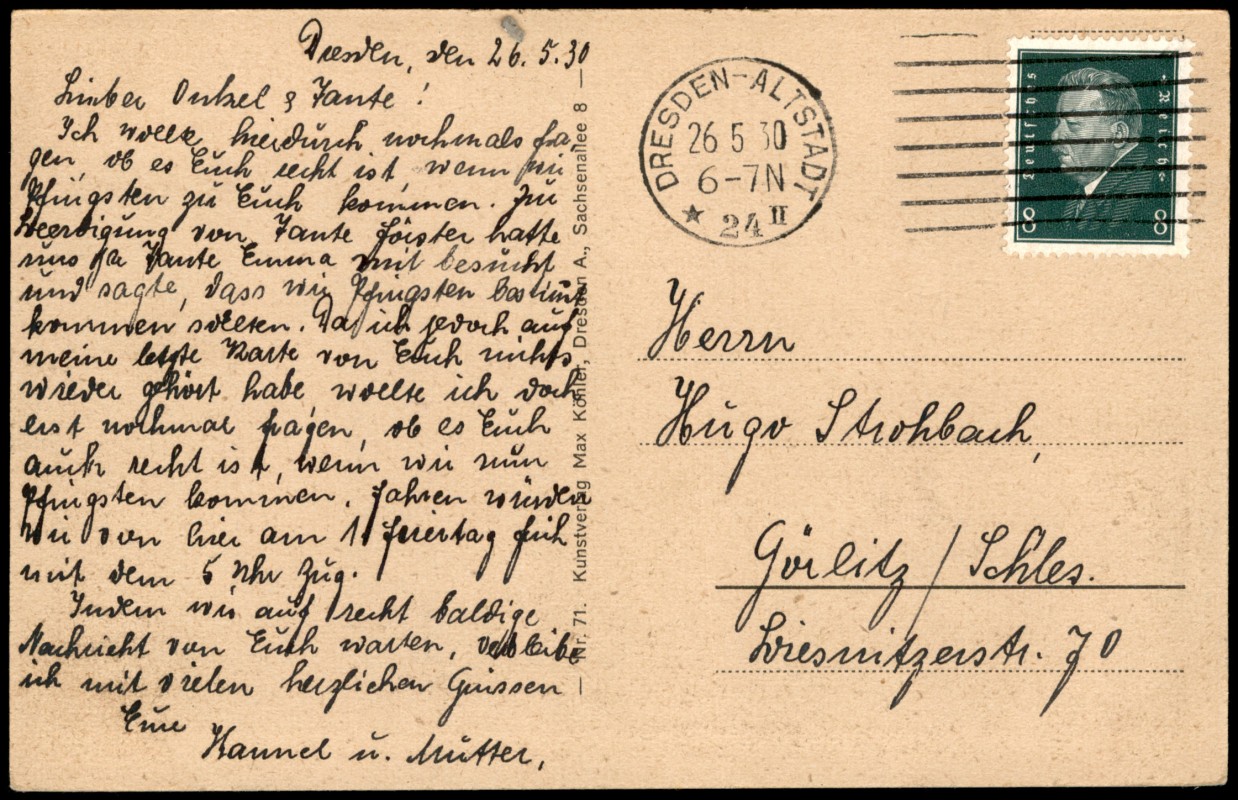 Dresden, den 26.5.30
Lieber Onkel & Tante!
Ich wollte hierdurch nochmals fra-
gen, ob es Euch recht ist, wenn wir
Pfingsten zu Euch kommen. Zur
Beerdigung von Tante Förster hatte
uns ja Tante Emma mit besucht
und sagte, dass wir Pfingsten bestimmt
kommen sollten. Da ich jedoch auf
meine letzte Karte von Euch nichts
wieder gehört habe wollte ich doch
erst nochmal fragen, ob es Euch
auch recht ist, wenn wir nun
Pfingsten kommen. Fahren würden
wir von hier am 1. Feiertag früh
mit dem 5 Uhr Zug.
Indem wir auf recht baldige
Nachricht von Euch warten, verbleibe
ich mit vielen herzlichen Grüssen
Eure
u. Mutter.
Nr. 71. Kunstverlag Max Köhler, Dresden A., Sachsenallee 8
DRESDEN-ALTSTADT
26 5 30
6-7N
★ 24 II
Deutsches Reich
8 8
Herrn
Hugo Strohbach,
Görlitz/Schles.
Biesnitzerstr. 70